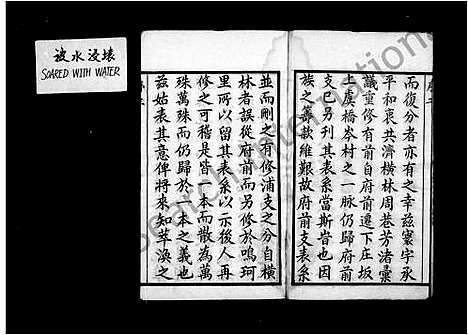 被水浸壞
SOAKED WITH WATER
而復分者亦有之幸茲寰宇承
平和衷共濟橫林周巷芳渚彙
議重修有前自府前遷下庄坂
上虞橋岑村之一脉仍歸府前
支已另刊其表系當斯旹也因
族之籌款維艱故府前支表系
並而刪之有修浦支之分自橫
林者誤從府前而另修於鳴珂
里所以留其表系以示後人再
修之可稽是皆一本而散為萬
殊萬殊而仍歸於一本之義也
茲姑表其意俾將來知萃渙之